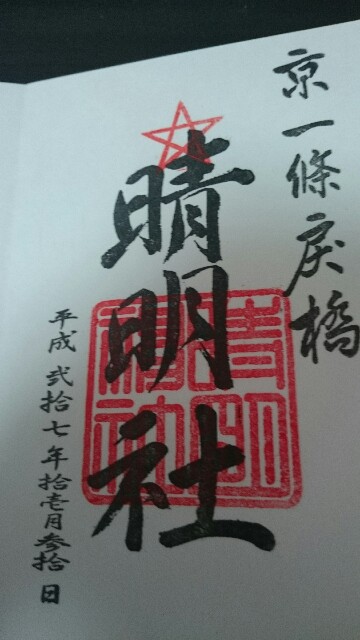 京一條戻橋
晴明社
晴明神社
平成弐拾七年拾壱月参拾日